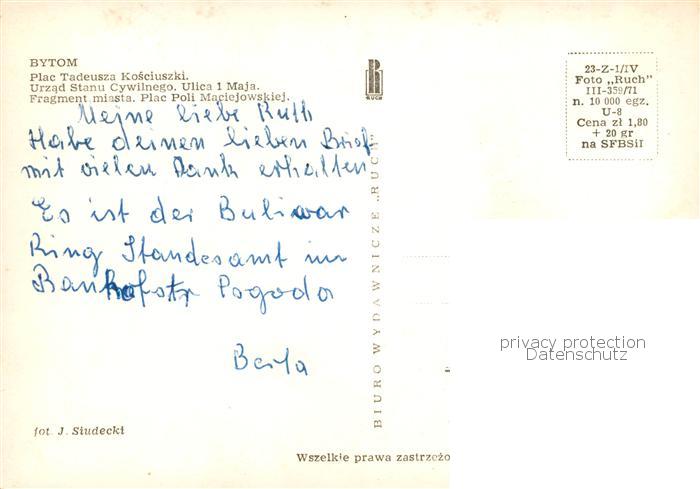 BYTOM
Plac Tadeusza Kościuszki.
Urząd Stanu Cywilnego. Ulica 1 Maja.
Fragment miasta. Plac Poli Maciejowskiej.
Meine liebe Ruth
Habe deinen lieben Brief
mit vielen Dank erhalten
Es ist der Buliwar
Ring Standesamt im
Pogoda
fot. J. Siudecki
RUCH
BIURO WYDAWNICZE „RUCH"
Wszelkie prawa zastrzeżo
23-Z-1/IV
Foto „Ruch"
III-359/71
n. 10 000 egz.
U-8
Cena zł 1,80
+ 20 gr
na SFBSiI
privacy protection
Datenschutz